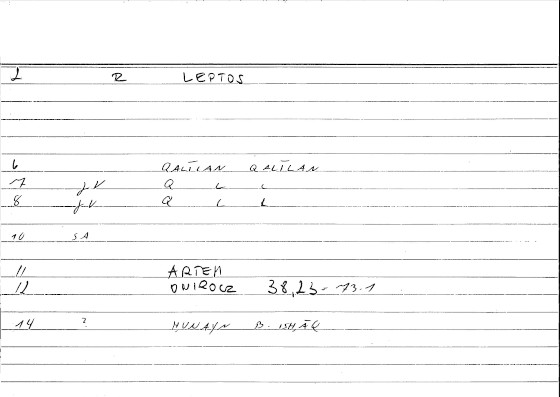 2 R LEPTOS
6 QALĪLAN QALĪLAN
7 gV Q L L
8 gV Q L L
10 SA
11 ARTEM
12 ONIROCR 38,23-73.1
14 ? HUNAYN B. ISHĀQ